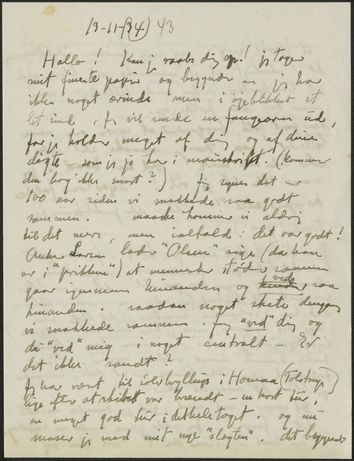 13-11-(34) 43
Hallo! Kan j raabe dig op! jeg tager
mit fineste papir og begynder – jeg har
ikke noget ærinde men i øjeblikket et
let sind. Jeg vil sende en ud,
for jeg holder meget af dig og af dine
digte – som jeg jo har i manuskript. (kommer
din bog ikke snart?) Jeg synes det er
100 aar siden vi snakkede saa godt
sammen. maaske kommer vi aldrig
til det mere, men ialfald: det var godt!
Anker lader "Olsen" sige (da han
er i ") at mennesker støder sammen
gaar igennem hinanden og ved, saa
hinanden. saadan noget skete dengang
vi snakkede sammen. Jeg "ved" dig og
du "ved" mig i noget centralt – Er
det ikke sandt?
Jeg har været til i Hornaa (Tolstrup)
lige efter at skibet var brændt – en kort tur,
en meget god tur i det hele taget. og nu
maser jeg med mit nye "slagten". det begynder